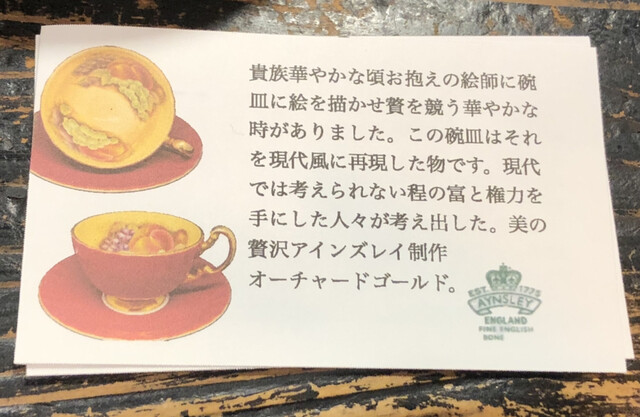 貴族華やかな頃お抱えの絵師に碗
皿に絵を描かせ贅を競う華やかな
時がありました。この碗皿はそれ
を現代風に再現した物です。現代
では考えられない程の富と権力を
手にした人々が考え出した。美の
贅沢アインズレイ制作
オーチャードゴールド。
EST 1775
AYNSLEY
ENGLAND
FINE ENGLISH
BONE